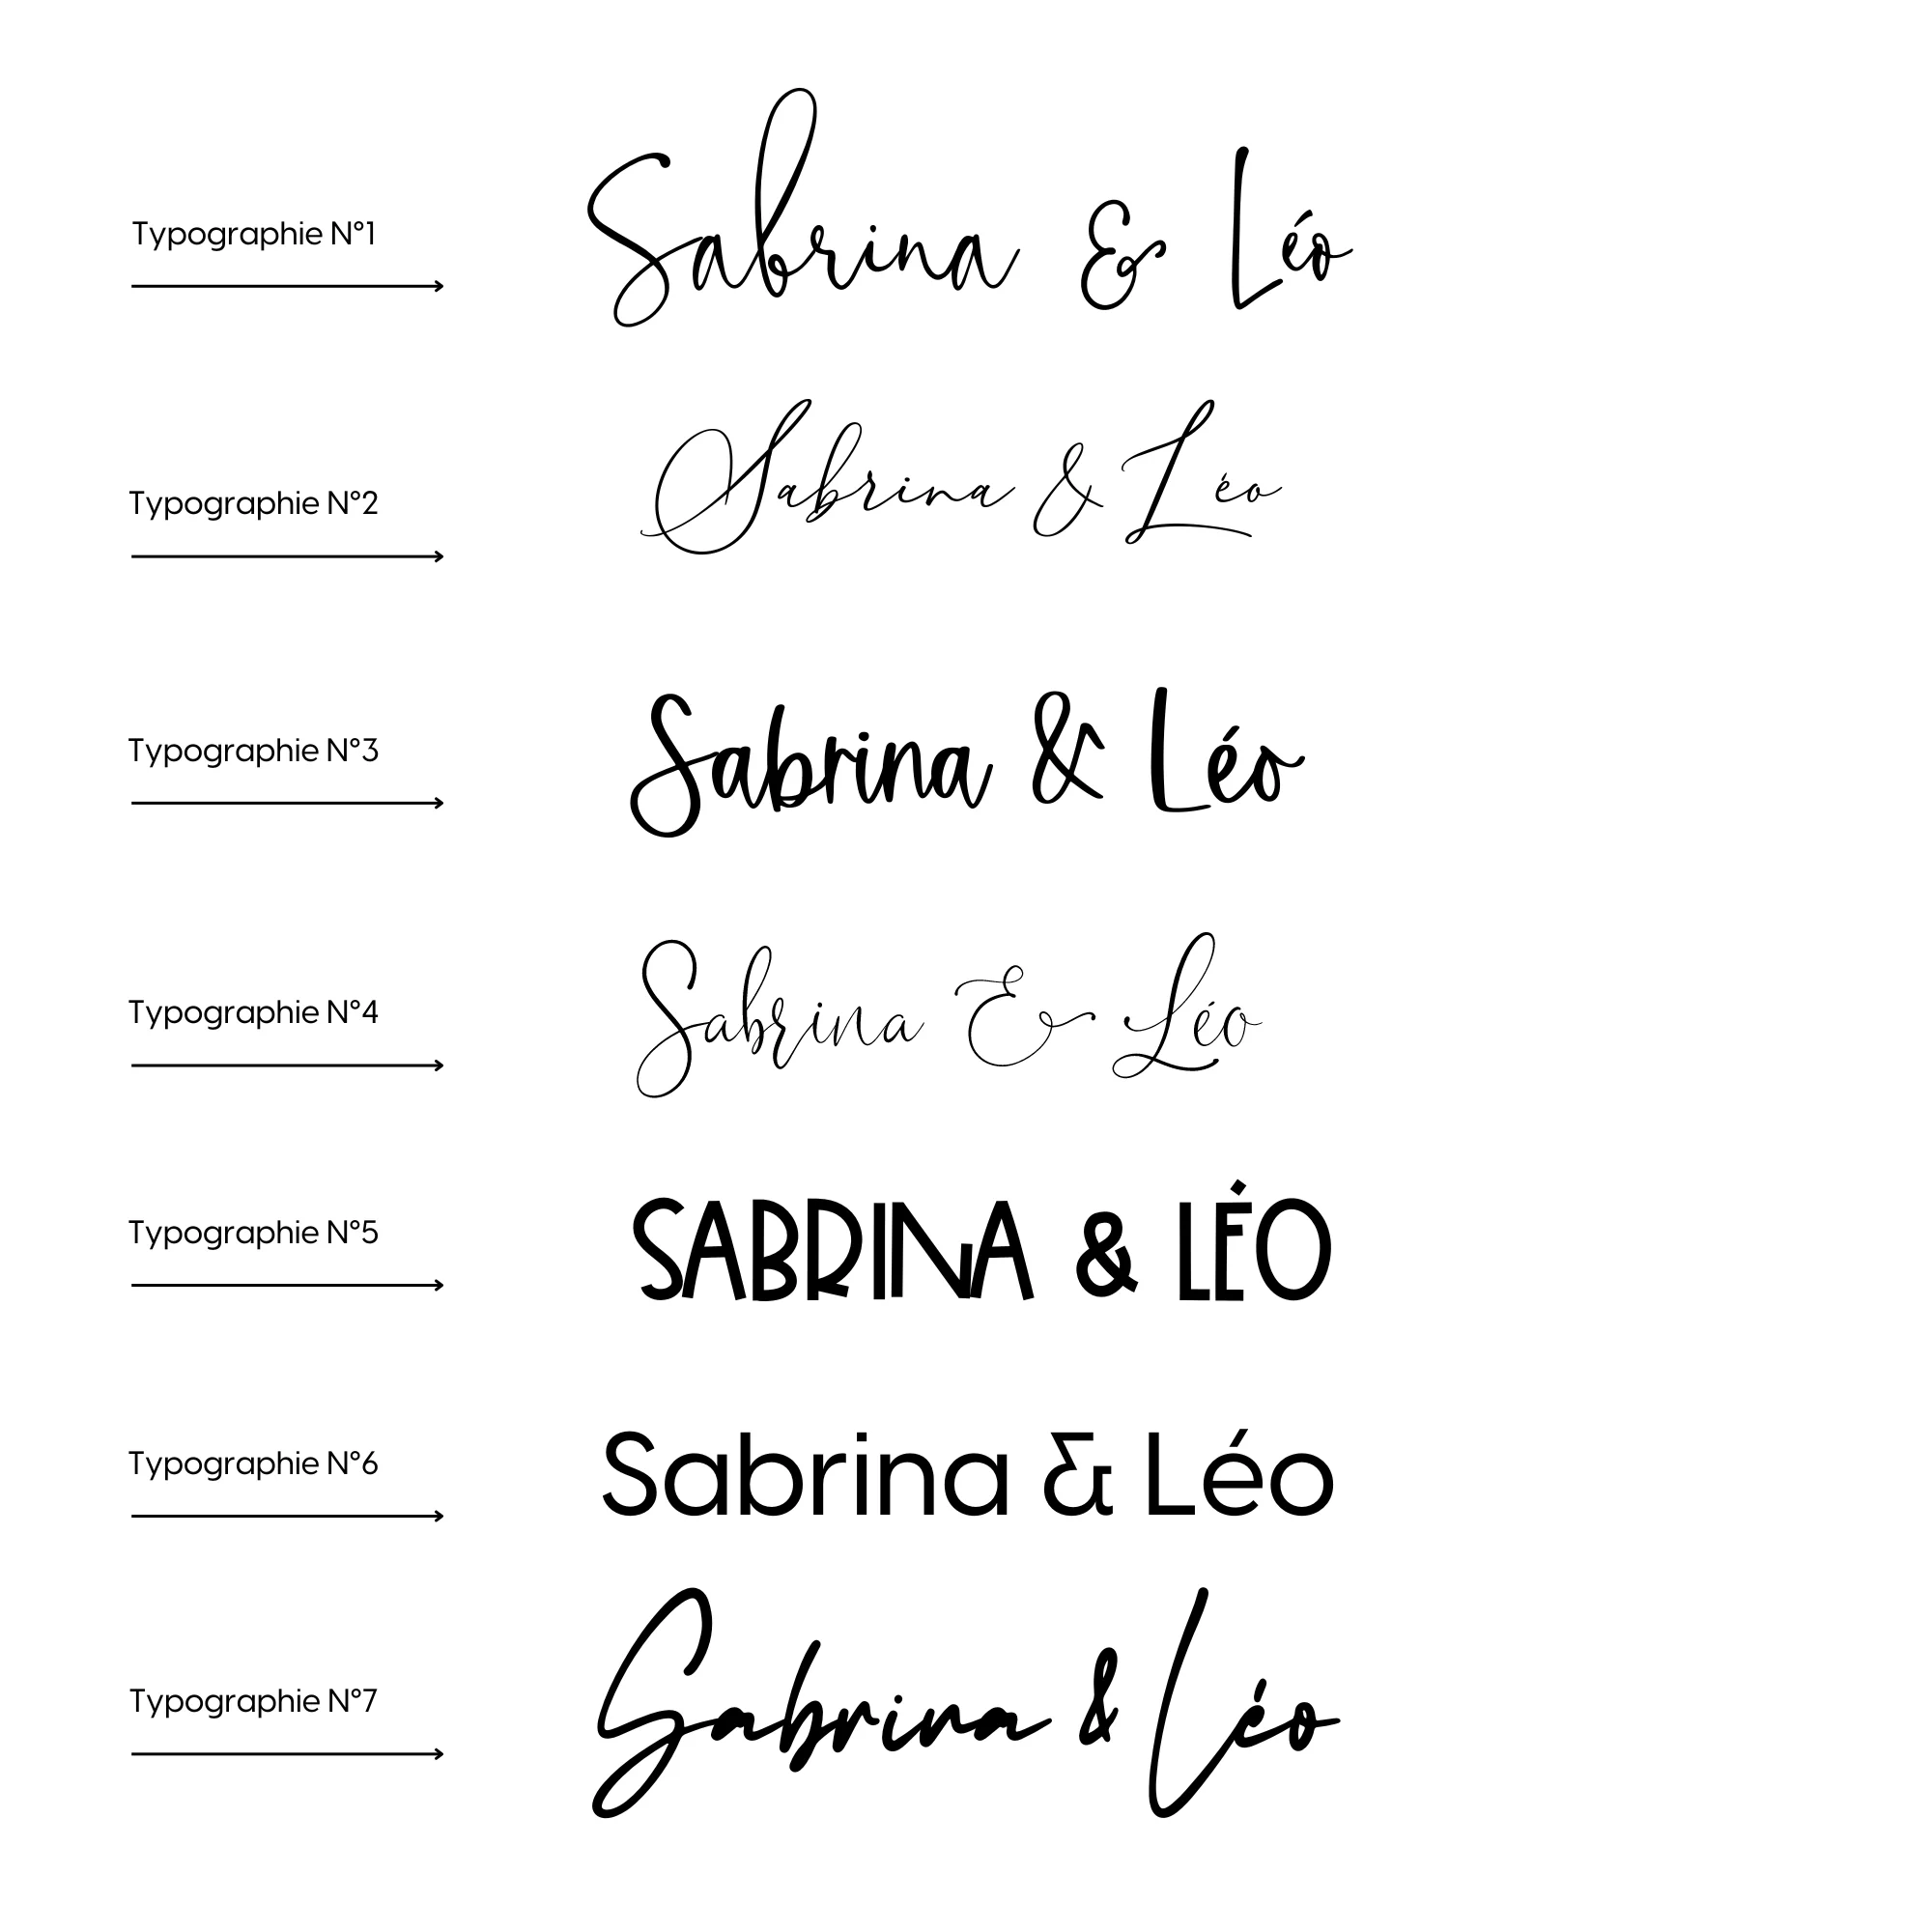 Typographie N°1
Sabrina & Léo
Typographie N°2
Sabrina & Léo
Typographie N°3
Sabrina & Léo
Typographie N°4
Sabrina & Léo
Typographie N°5
SABRINA & LÉO
Typographie N°6
Sabrina & Léo
Typographie N°7
Sabrina & Léo